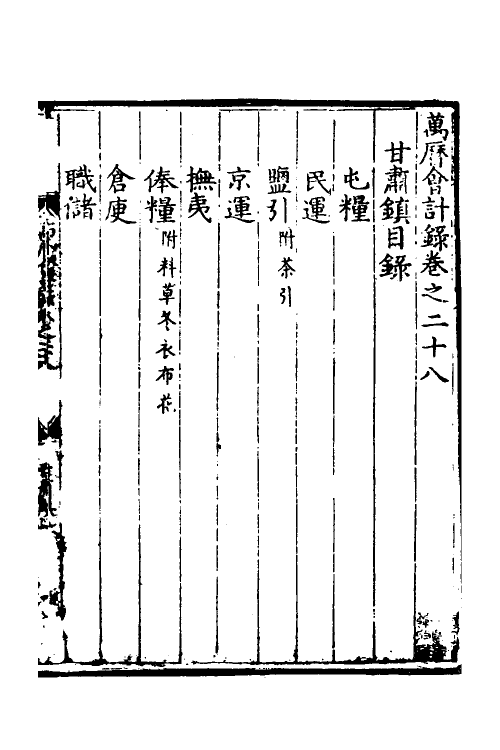 萬曆會計録卷之二十八
甘肅鎮目録
屯糧
民運
鹽引附茶引
京運
撫夷
俸糧附料草冬衣布花
倉庾
職儲